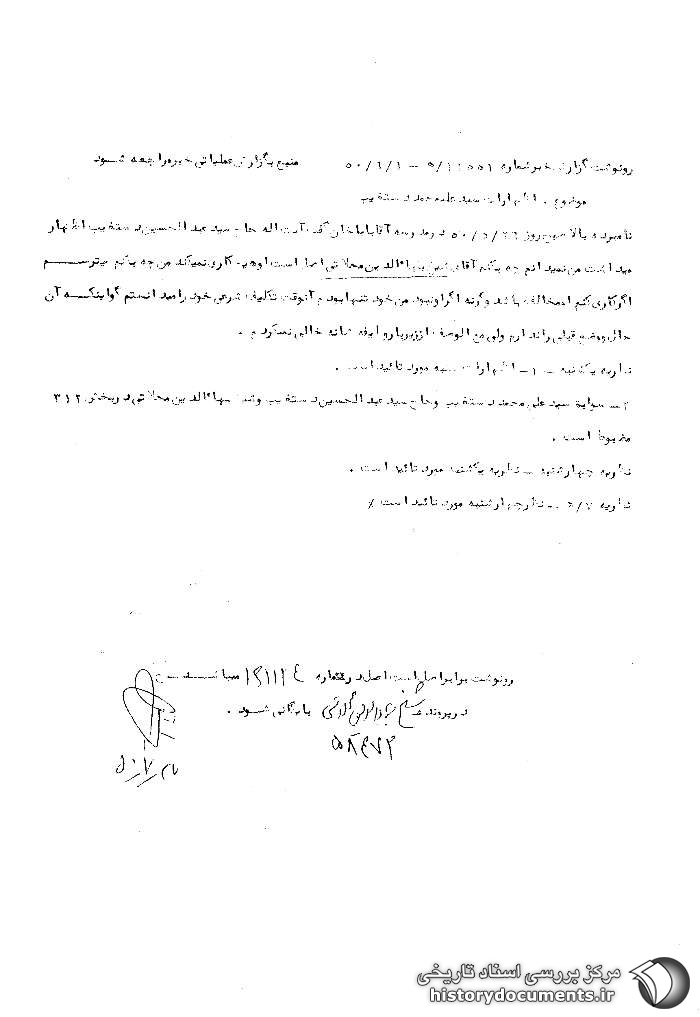 رونوشت گزارش خبر شماره ۵/۱۱۵۵۱ – ۵۰/۶/۱ منبع بگزارش عملیاتی خبره مراجعه شود
موضوع . اظهارات سید علیمحمد دستغیب
نامبرده بالا روز ۵۰/۵/۲۶ در مدرسه آقاباباخان گفت آیت اله حاج سید عبدالحسین دستغیب اظهار
میداشت من نمیدانم چه بکنم آقای شیخ بهاءالدین محلاتی اصل است او هیچ کاری نمیکند من چه بکنم میترسم
اگر کاری کنم او مخالف باشد وگرنه اگر او نبود من خود تنها بودم آنوقت تکلیف شرعی خود را میدانستم گو اینکه آن
حال و وضع قبلی را ندارم ولی مع الوصف از زیر بار وظیفه شانه خالی نمیکردم .
نظریه یکشنبه – ۱– اظهارات شنبه مورد تائید است .
۲– سوابق سید علی محمد دستغیب و حاج سید عبدالحسین دستغیب و شیخ بهاءالدین محلاتی در بخش ۳۱۲
مضبوط است .
نظریه چهارشنبه – نظریه یکشنبه مورد تائید است .
نظریه ۵/۷ – نظر چهارشنبه مورد تائید است ٪
رونوشت برابر اصل است اصل در شماره ۱۲۱۱۲۴ میباشد
در پرونده شیخ بهاءالدین محلاتی بایگانی شود .
۵۸۴۷۳
مرکز بررسی اسناد تاریخی
historydocuments.ir